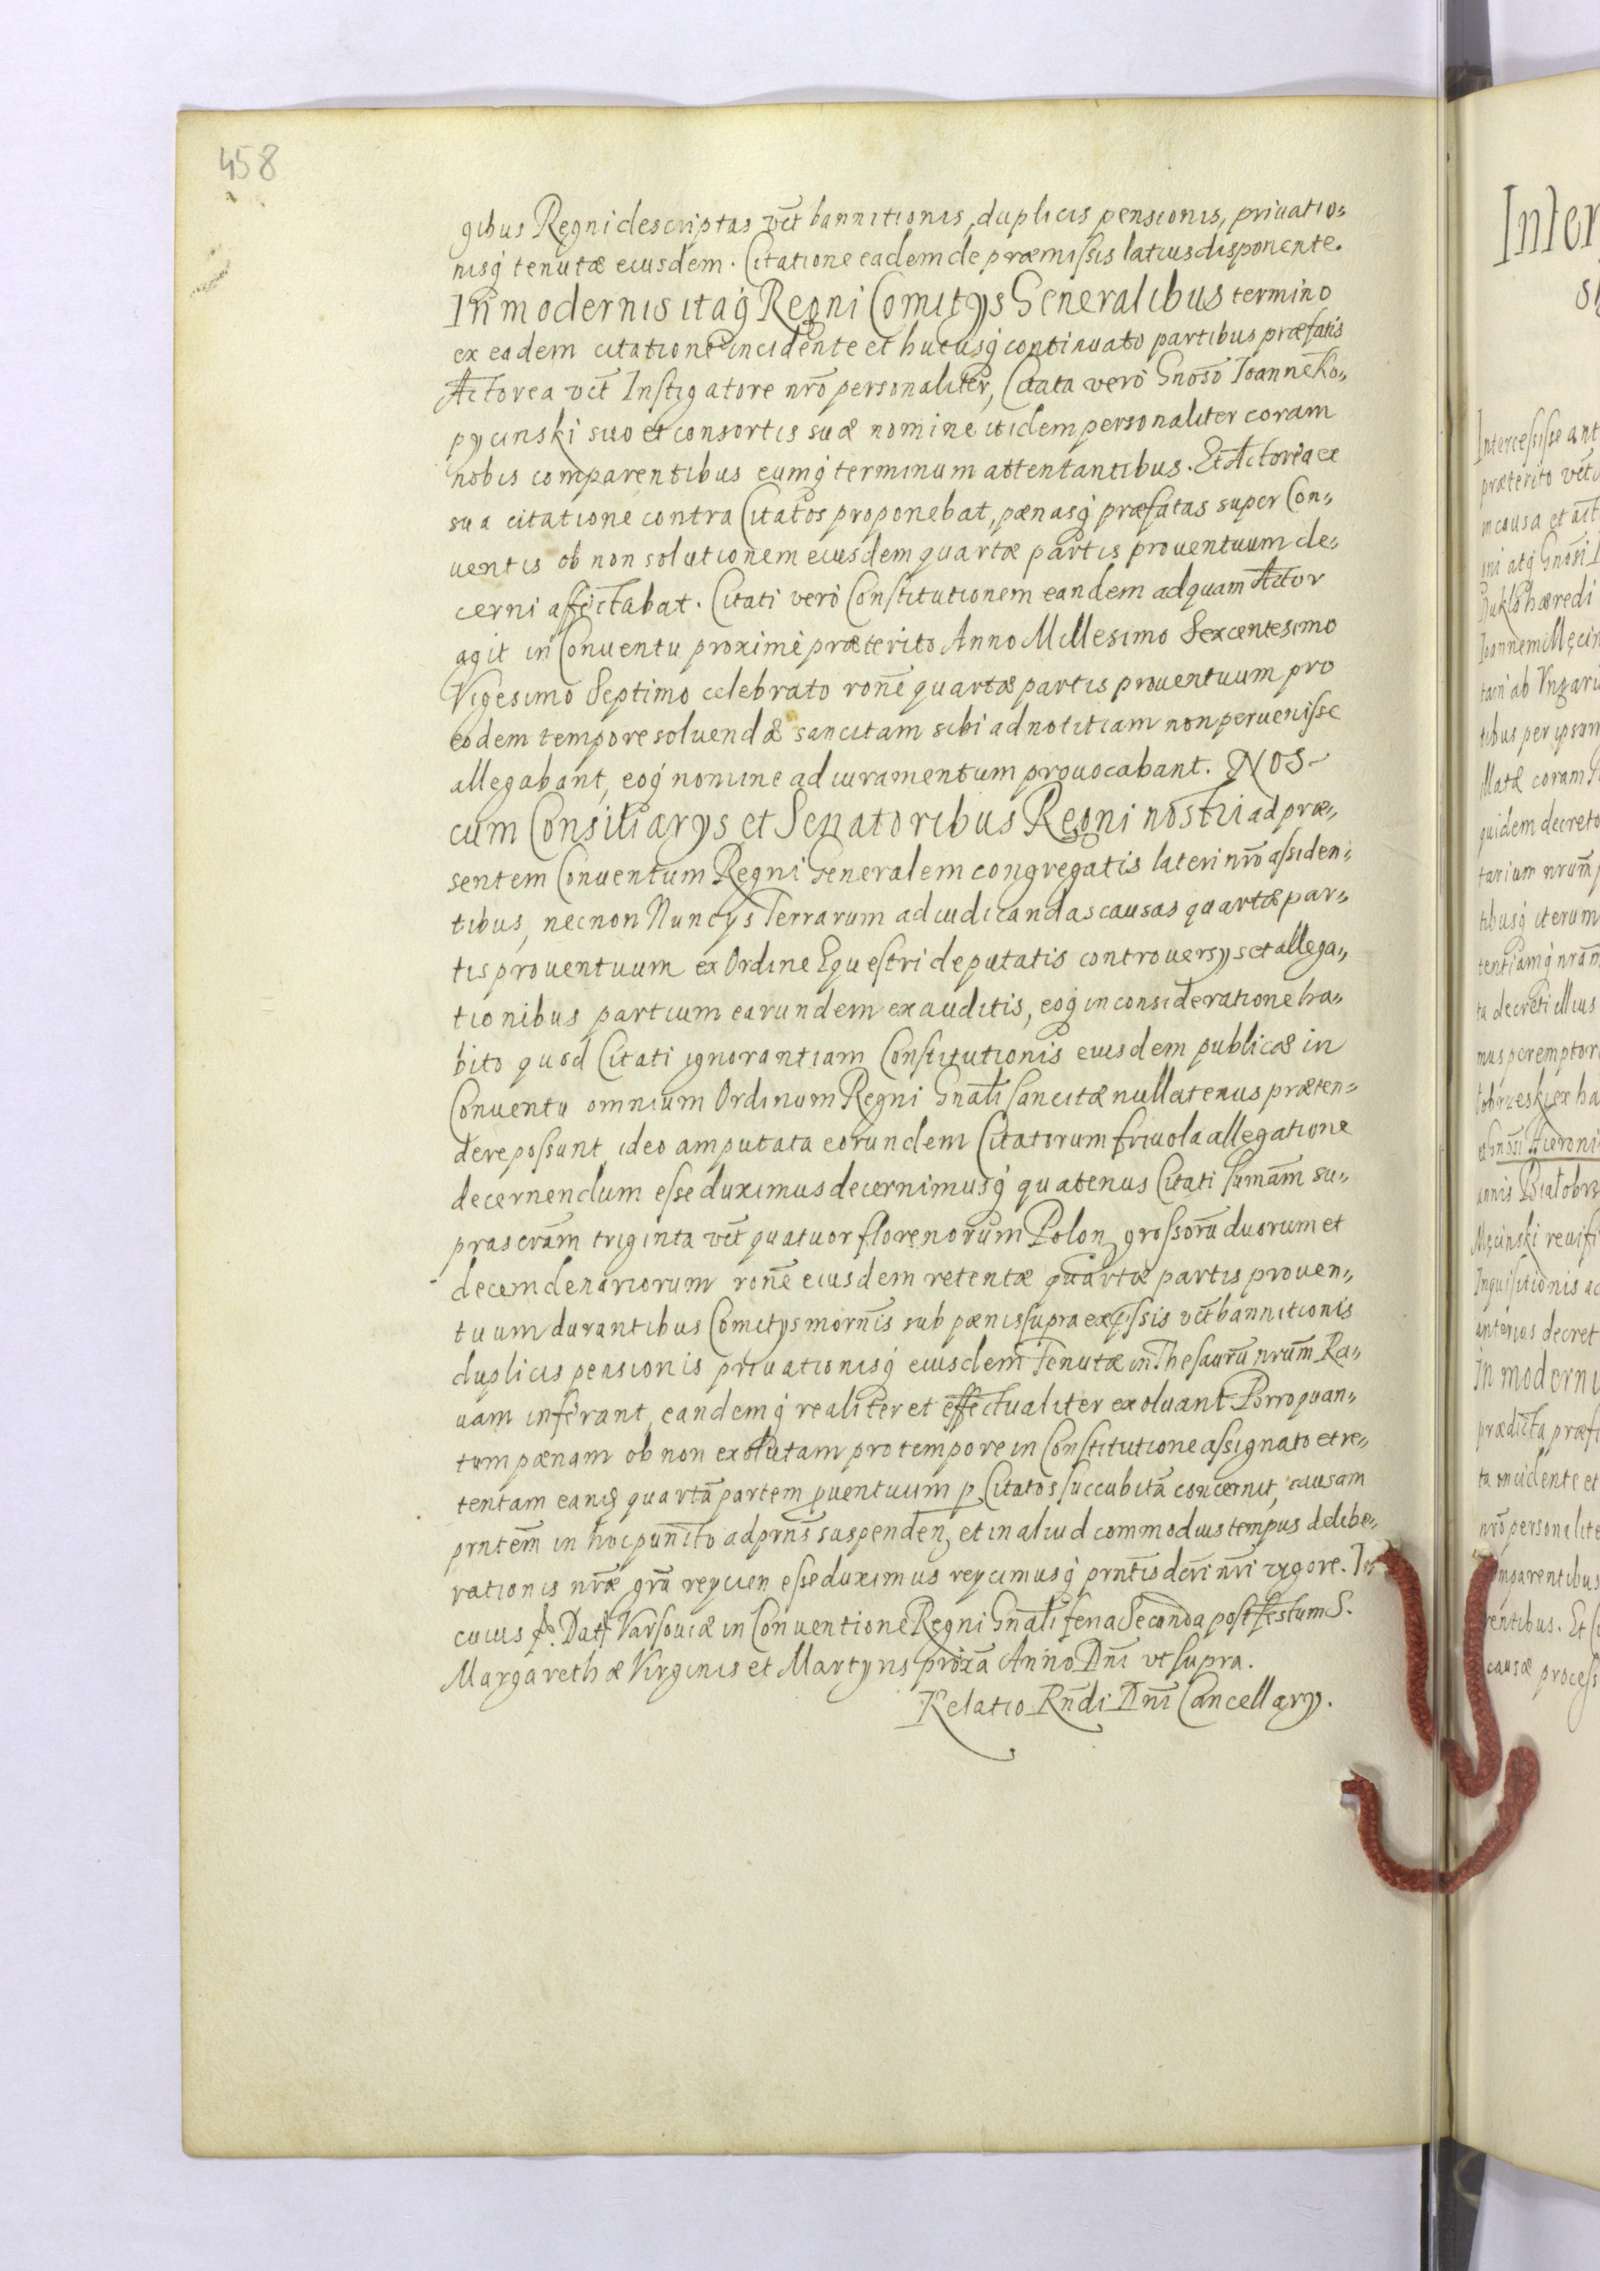 458
gibus Regni descriptas vct bannitionis, duplicis pensionis, priuatio,,
nisq́ tenutæ eiusdem. Citatione eadem de præmissis latius disponente.
In modernis itaq́ Regni Comitys Generalibus termino
ex eadem citatione incidente et hucusq́ continuato partibus præfatis
Actorea vct Instigatore nro personaliter, Citata verò Gnoso Ioanne Ko,,
pycinski suo et consortis suæ nomine itidem personaliter coram
nobis comparentibus eumq́ terminum attentantibus. Et Actorea ex
sua citatione contra Citatos proponebat, pænasq́ præfatas super Con,,
uentis ob non solutionem eiusdem quartæ partis prouentuum de,,
cerni affectabat. Citati verò Constitutionem eandem ad quam Actor
agit in Conuentu proximè præterito Anno Millesimo Sexcentesimo
Vigesimo Septimo celebrato rone quartæ partis prouentuum pro
eodem tempore soluendæ sancitam sibi ad notitiam non peruenisse
allegabant, eoq́ nomine ad iuramentum prouocabant. NOS
cum Consiliarys et Senatoribus Regni nostri ad præ,,
sentem Conuentum Regni Generalem congregatis lateri nro assiden,,
tibus, necnon Nuncys Terrarum ad iudicandas causas quartæ par,,
tis prouentuum ex Ordine Equestri deputatis controuersys et allega,,
tionibus partium earundem exauditis, eoq́ in consideratione ha,,
bito quod Citati ignorantiam Constitutionis eiusdem publicæ in
Conuentu omnium Ordinum Regni Gnali sancitæ nullatenus præten,,
dere possunt, ideo amputata eorundem Citatorum friuola allegatione
decernendum esse duximus decernimusq́ quatenus Citati sumam su,,
prascram triginta vct quatuor florenorum Polon, grossoru duorum et
decem denariorum rone eiusdem retentæ quartæ partis prouen,,
tuum durantibus Comitys mornis sub pænis supra expssis vct bannitionis
duplicis pensionis priuationisq́ eiusdem Tenutæ in Thesauru nrum Ra,,
uam inferant, eandemq́ realiter et effectualiter exoluant. Porro quan,,
tum pænam ob non exolutam pro tempore in Constitutione assignato et re,,
tentam eand quarta partem puentuum p Citatos succubita concernit, causam
prntem in hoc puncto ad prns suspenden, et in aliud commodius tempus delibe,,
rationis nræ gra reycien esse duximus reycimusq́ prntis dcri nri vigore. In
cuius f. Dat Varsouiæ in Conuentione Regni Gnali feria Secunda post festum S.
Margarethæ Virginis et Martyris proxa Anno Dni vt supra.
Relatio Rndi Dni Cancellary.
Inter
Intercessisse ant
præterito vct
in causa et act
ni atq́ Gnosi I
hæredi
Ioannem Męcin
tibus per ipsam
Matæ coram
quidem decreto
tarium nrum
tibusq́ iterum
tentiamq́ nram
ta decreti illius
mus peremptor
et Gnosi Hieroni
annis Białobrz
Męcinski reuisi
Inquisitionis ac
anterius decret
In modernis
prædicta præfi
ta incidente et
nro personalite
mparentibus
rentibus. Et Ci
causæ process